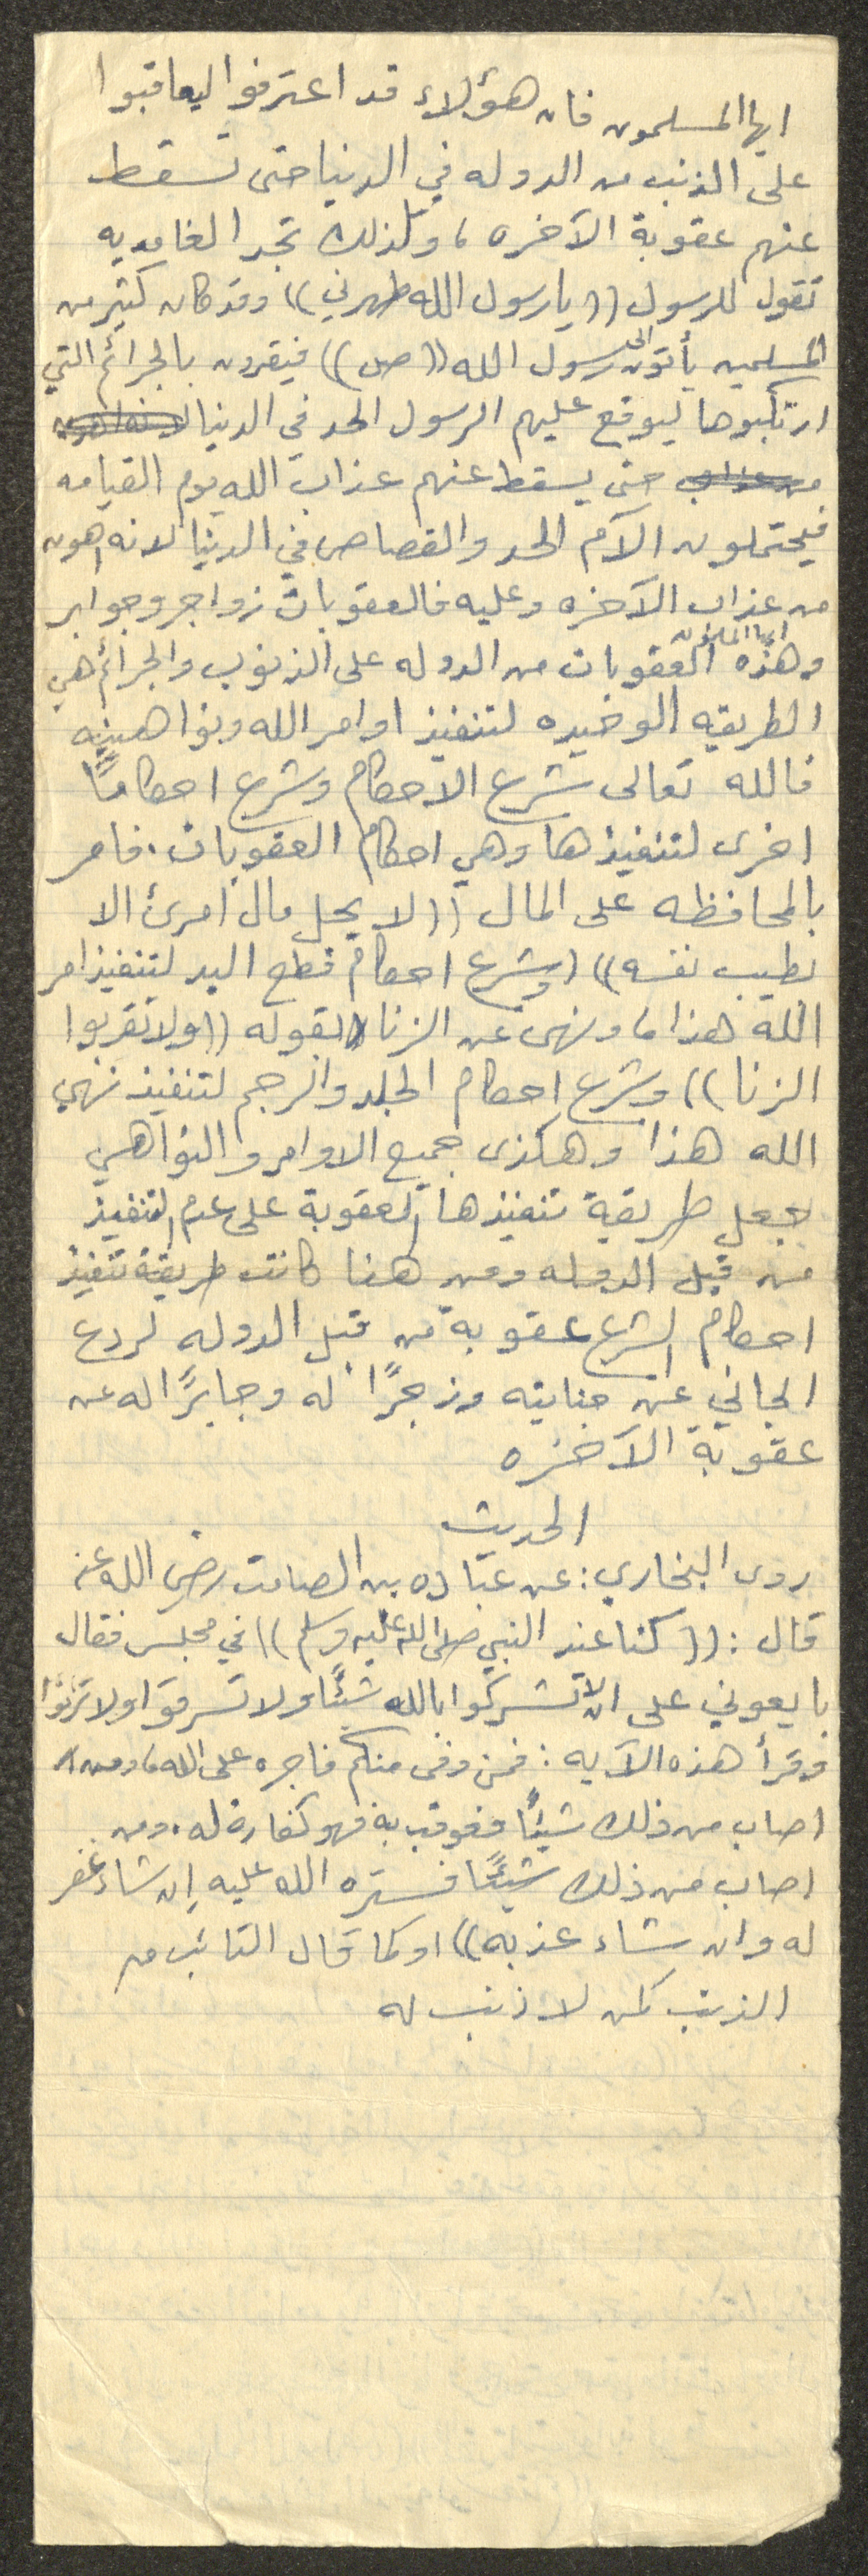 ايها المسلمون فان هؤلاء قد اعترفوا ليعاقبوا
على الذنب من الدوله في الدنيا حتى تسقط
عنهم عقوبة الآخره ، وكذلك تجد الغامديه
تقول للرسول ((يا رسول الله طهرني)) وقد كان كثير من
المسلمين يأتون الى رسول الله ((ص)) فيقرون بالجرائم التي
ارتكبوها ليوقع عليهم الرسول الحد في الدنيا لانه اهون
من عذاب حتى يسقط عنهم عذاب الله يوم القيامه
فيحتملون الآم الحد والقصاص في الدنيا لانه اهون
من عذاب الآخره وعليه فالعقوبات زواجر وجوابر
وهذه ايها المسلمون العقوبات من الدوله على الذنوب والجرائم هي
الطريقه الوحيده لتنفيذ اوامر الله ونواهيه
فالله تعالى شرع الاحكام وشرع احكامًا
اخرى لتنفيذها وهي احكام العقوبات . فامر
بالمحافظه على المال ((لا يحل مال امرئ الا
بطيب نفسه)) وشرع احكام قطع اليد لتنفيذ امر
الله هذا ، ونهى عن الزنا بقوله ((ولا تقربوا
الزنا)) وشرع احكام الجلد والرجم لتنفيذ نهي
الله هذا وهكذى جميع الاوامر والنواهي
جعل طريقة تنفيذها العقوبة على عدم التنفيذ
من قبل الدوله ومن هنا كانت طريقة تنفيذ
احكام الشرع عقوبة من قبل الدوله لردع
الجاني عن جنايته وزجرًا له وجابرًا له عن
عقوبة الآخره
الحديث
روى البخاري : عن عباده بن الصامت رضي الله عنه
قال : ((كنا عند النبي صلى الله عليه وسلم)) في مجلس فقال
بايعوني على ان لا تشركوا بالله شيئًا ولا تسرقوا ولا تزنوا
وقرأ هذه الآيه : فمن وفى منكم فاجره على الله ، ومن
اصاب من ذلك شيئًا فعوقب به فهو كفارة له . ومن
اصاب من ذلك شيئًا فستره الله عليه إن شاء غفر
له وان شاء عذبه)) او كما قال التائب من
الذنب كمن لا ذنب له